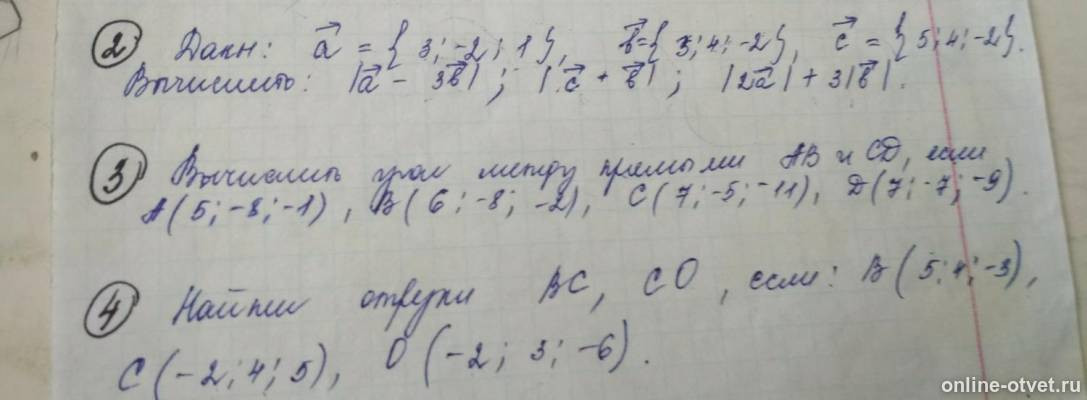 2 Дан: a⃗ = { 3; -2; 1 }, b⃗ = { 3; 4; -2 }, c⃗ = { 5; 4; -2 }.
Вычислить: |a⃗ - 3b⃗| ; |c⃗ + b⃗| ; |2a⃗| + 3|b⃗|.
3 Вычислить угол между прямыми AB и CD, если
A( 5; -8; -1) , B( 6 ; -8; -2), C( 7; -5; -11), D( 7; -7; -9) .
4 Найти отрезки BC, CO , если: B( 5; 4; -3) ,
C (-2; 4; 5), O (-2; 3; -6) .
online-otvet.ru